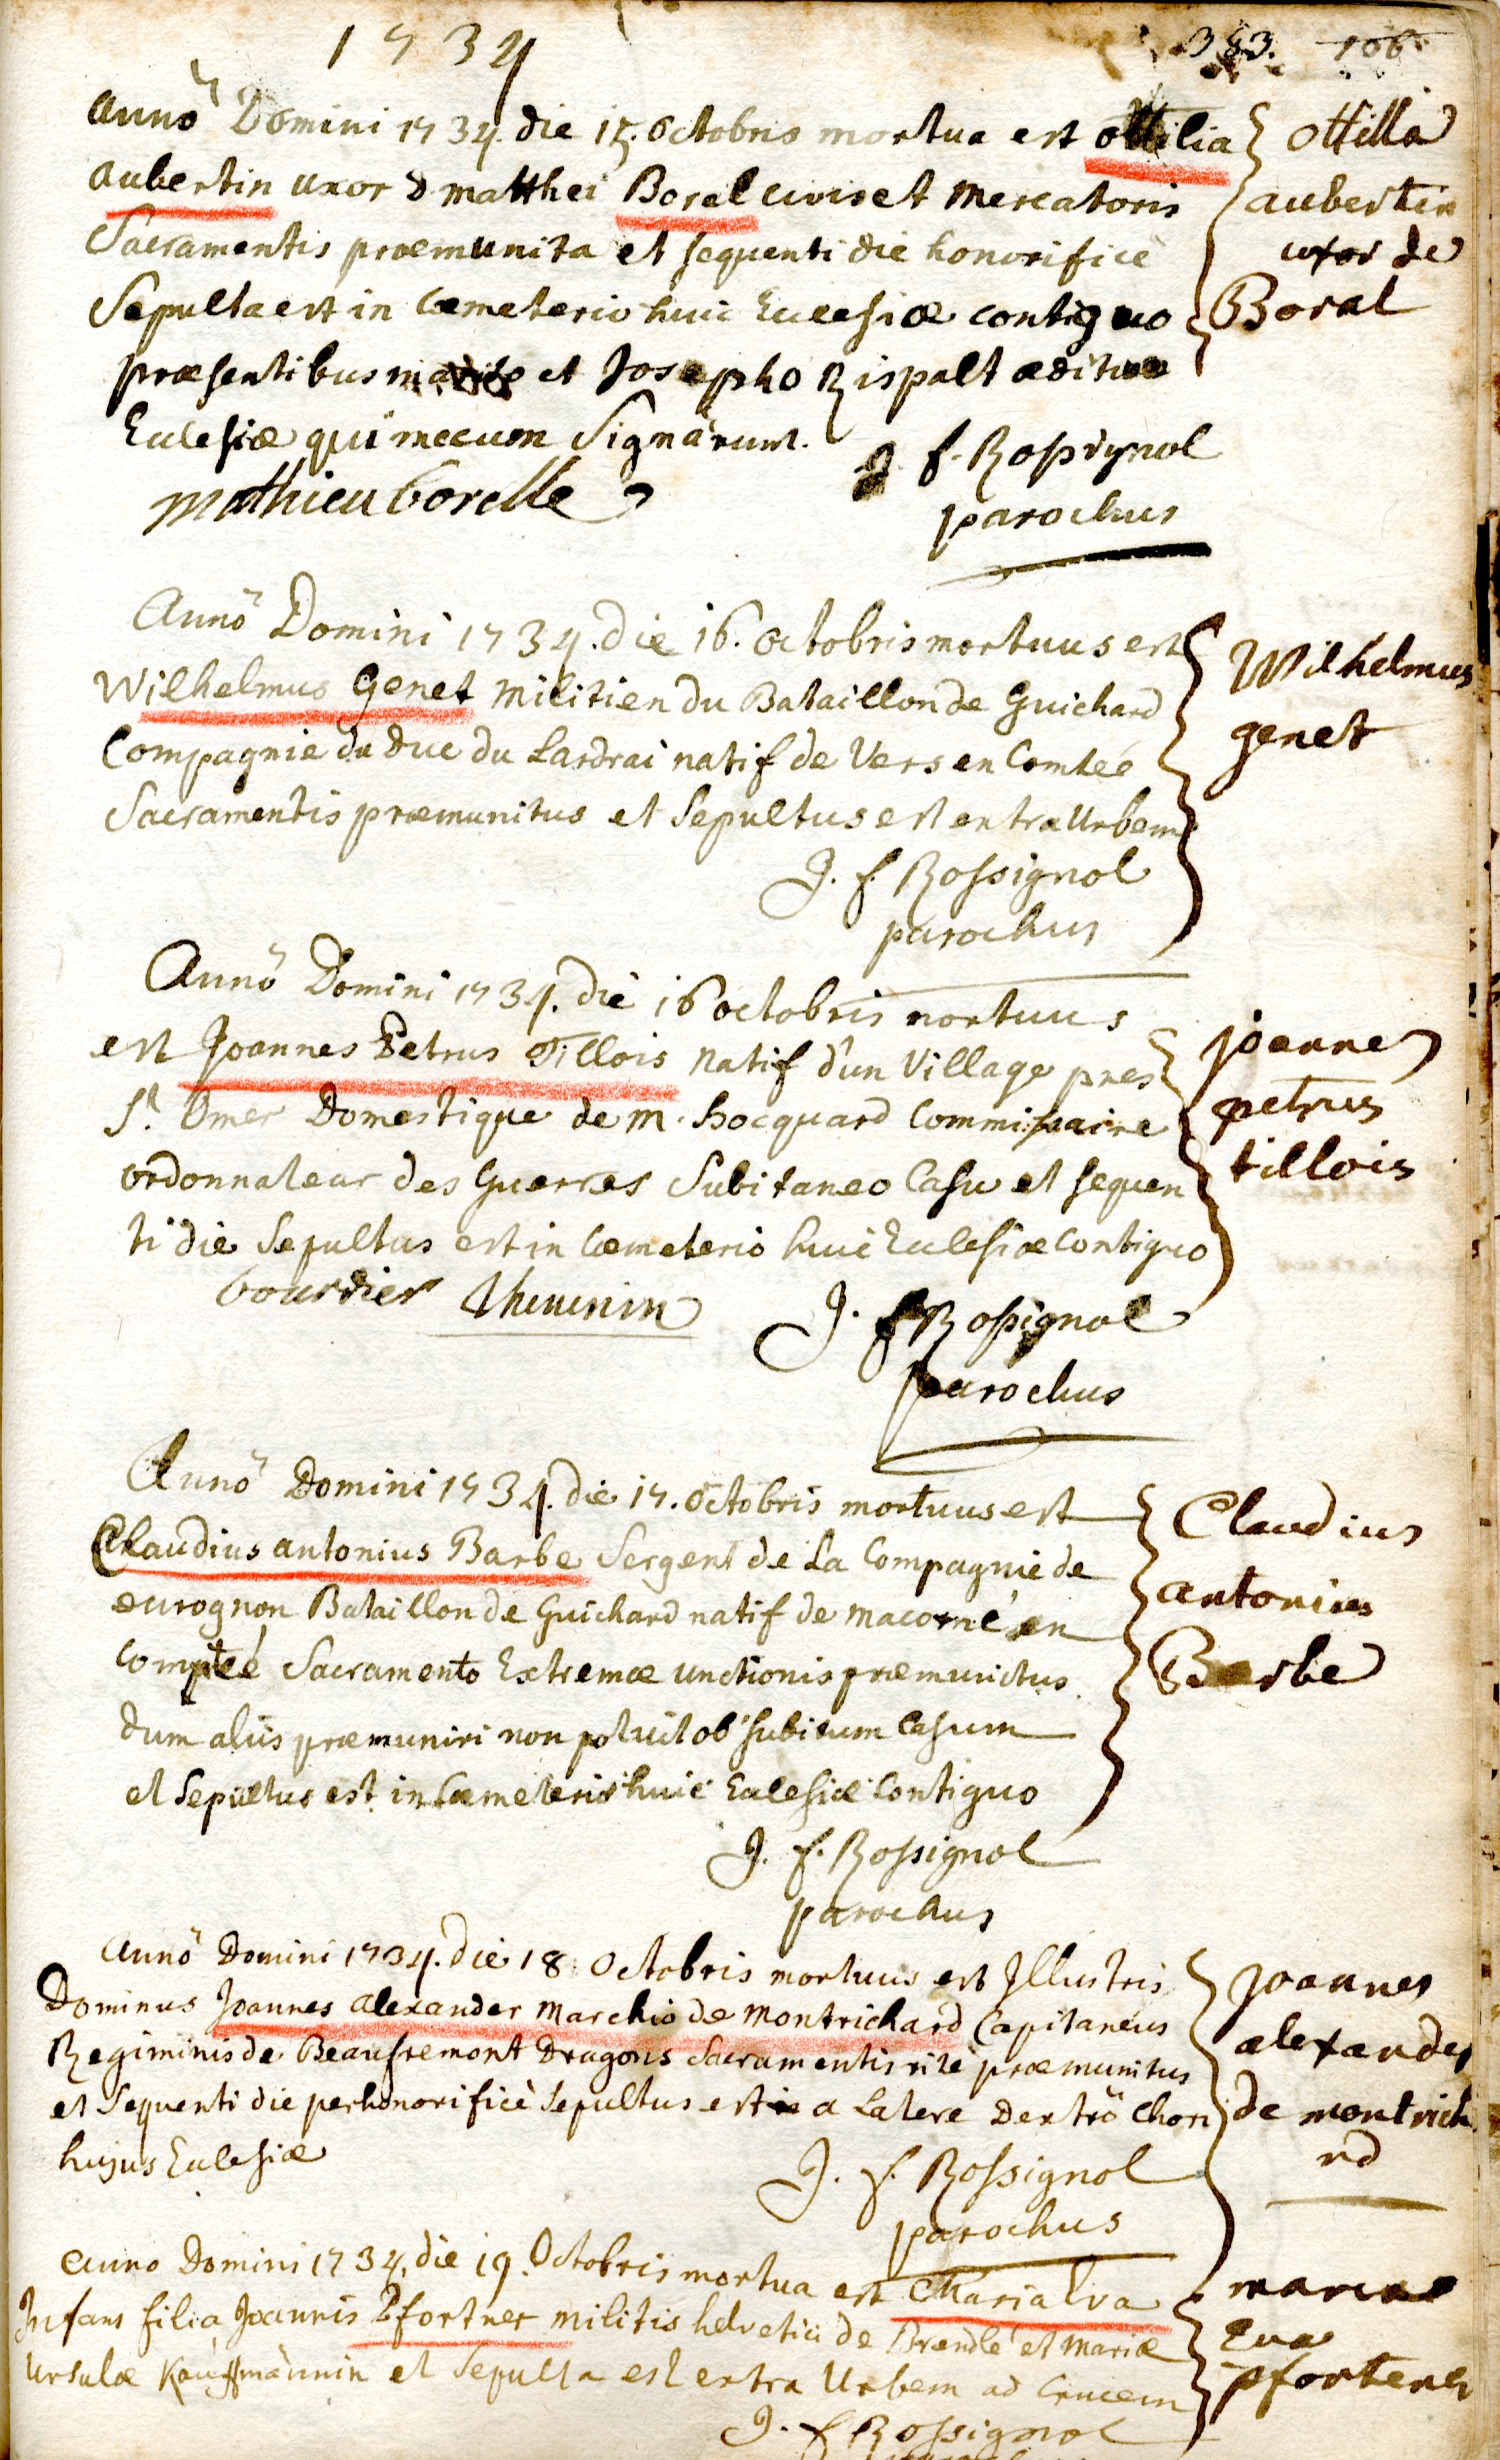 1734
383. 106.
Anno Domini 1734. die 15. octobris mortua est ottilia
aubertin uxor D matthei Boral civis et mercatoris
Sacramentis praemunita et sequenti die honorifice
Sepulta est in Coemeterio huic Ecclesiae contiguo
praesentibus marito et Josepho Rispalt aedituo
Eclesiae qui mecum Signarunt.
J. f. Rossignol
parochus
mathieu borelle
ottilia
aubertin
uxor de
Boral
Anno Domini 1734. die 16. octobris mortuus est
Wilhelmus Genet militien du Bataillon de Guichard
Compagnie du Duc du Lardrai natif de Vers en Comtéé
Sacramentis praemunitus et Sepultus est extra Urbem
J. f. Rossignol
parochus
Wilhelmus
genet
Anno Domini 1734. die 16 octobris mortuus
est Joannes Petrus Tillois natif d'un Village pres
St. Omer Domestique de M. hocquard Commissaire
ordonnateur des Guerres Subitaneo Casu et sequen
ti die Sepultus est in Coemeterio huic Eclesiae Contiguo
bourdier thevenin
J. f Rossignol
parochus
joannes
petrus
tillois
Anno Domini 1734. die 17. octobris mortuus est
Claudius antonius Barbe Sergent de La Compagnie de
eurognon Bataillon de Guichard natif de macorné en
Comptéé Sacramento Extremae unctionis praemunitus
dum aliis praemuniri non potuit ob subitum Casum
et Sepultus est in Coemeterio huic Eclesiae Contiguo
J. f. Rossignol
parochus
Claudius
antonius
Barbe
Anno Domini 1734. die 18 Octobris mortuus est Illustris
Dominus Joannes alexander Marchio de Montrichard Capitaneus
Regiminis de Beaufremont Dragons Sacramentis rite praemunitus
et Sequenti die perhonorificè Sepultus est a Latere Dextro Chori
hujus Eclesiae
J. f. Rossignol
parochus
joannes
alexander
de montrich
rd
Anno Domini 1734. die 19. Octobris mortua est Maria Eva
Infans filia Joannis Pfortner militis helvetici de Brendlé et Mariae
Ursulae Kauffmännin et Sepulta est extra Urbem ad Crucem
J. f Rossignol
maria
Eva
pfortener